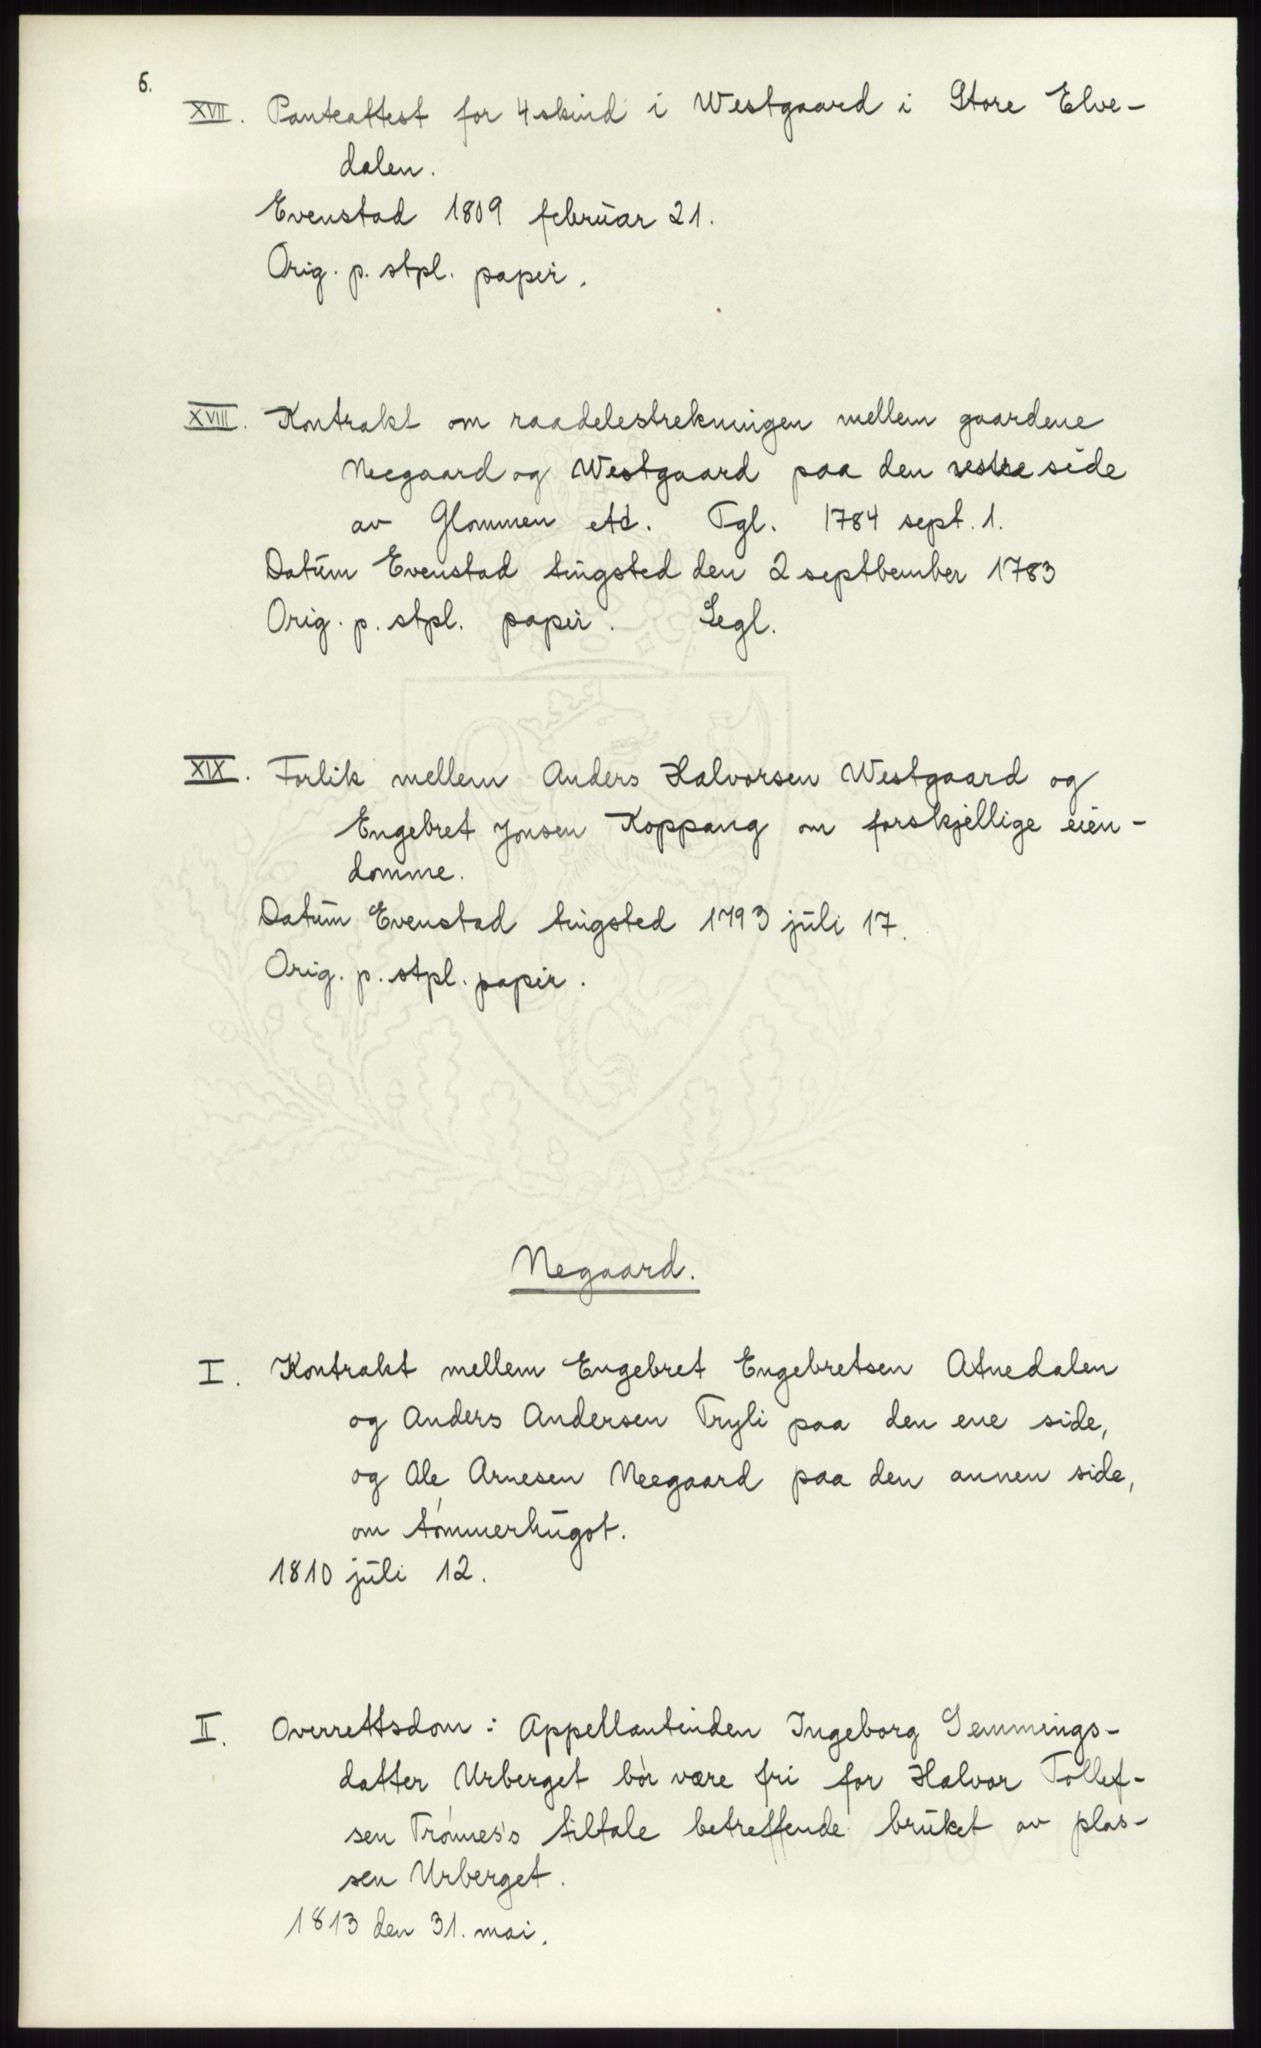 6.
XVII. Panteattest for 4 skind i Westgaard i Store Elve-
dalen.
Evenstad 1809 februar 21.
Orig. p. stpl. papir.
XVIII. Kontrakt om raadelestrekningen mellem gaardene
Neegaard og Westgaard paa den vestre side
av Glommen etc. Tgl. 1784 sept. 1.
Datum Evenstad tingsted den 2 septbember 1783
Orig. p. stpl. papir. Segl.
XIX. Forlik mellem Anders Halvorsen Westgaard og
Engebret Jonsen Koppang om forskjellige eien-
domme.
Datum Evenstad tingsted 1793 juli 17.
Orig. p. stpl. papir.
Negaard.
I. Kontrakt mellem Engebret Engebretsen Atnedalen
og Anders Andersen Tryli paa den ene side,
og Ole Arnesen Neegaard paa den annen side,
om tømmerhugst.
1810 juli 12.
II. Overrettsdom: Appellantinden Ingeborg Semmings-
datter Urberget bør være fri for Halvor Tollef-
sen Trønnes's tiltale betreffende bruket av plas-
sen Urberget.
1813 den 31. mai.